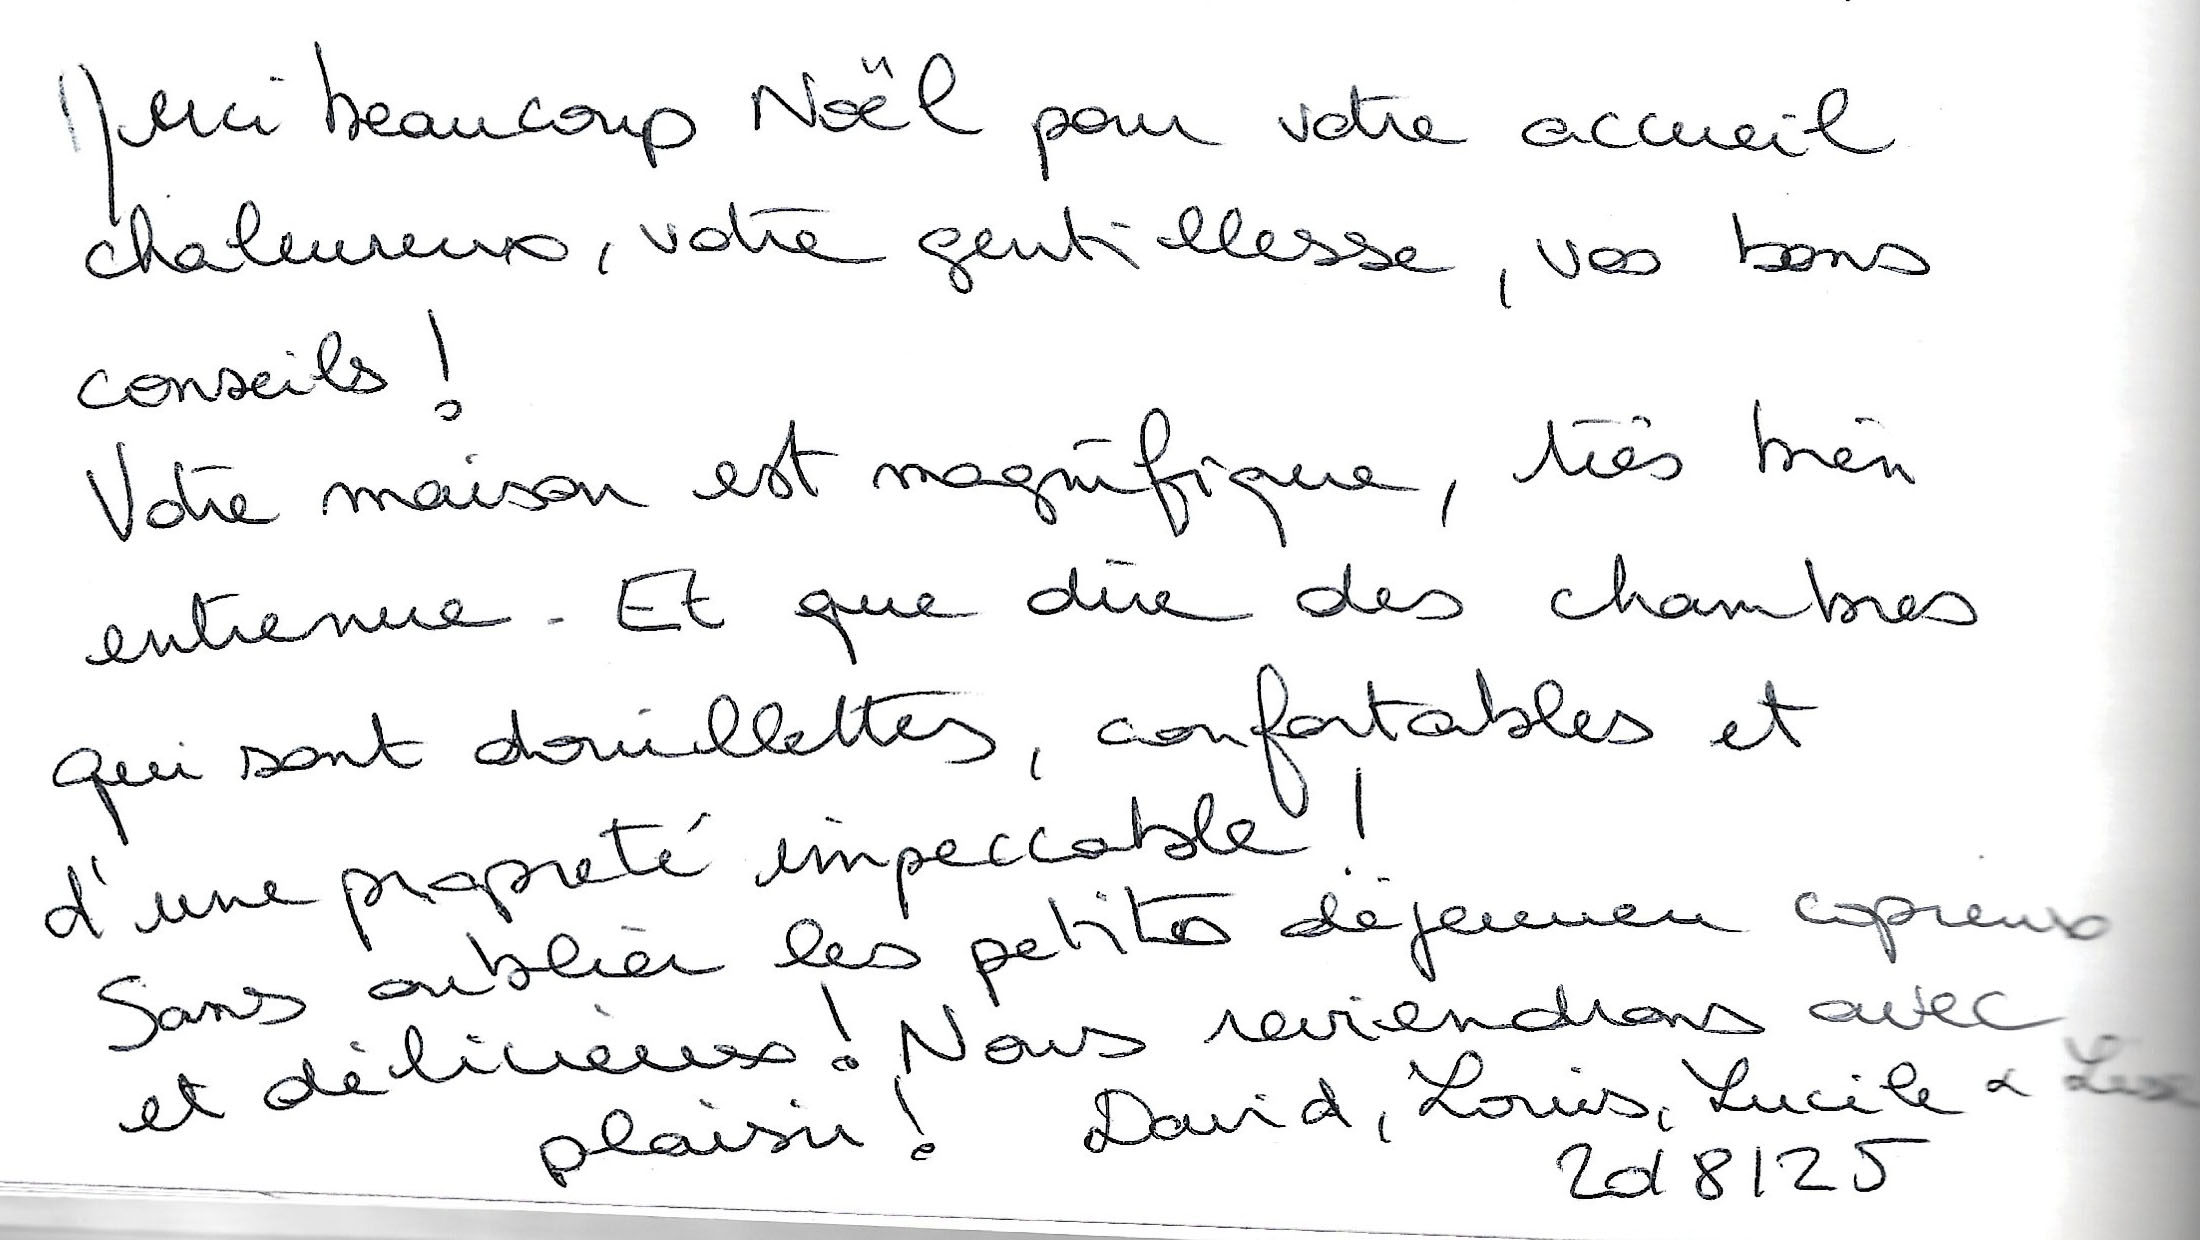 Merci beaucoup Noël pour votre accueil
chaleureux, votre gentillesse, vos bons
conseils !
Votre maison est magnifique, très bien
entretenue. Et que dire des chambres
qui sont douillettes, confortables et
d'une propreté impeccable !
Sans oublier les petits déjeuner copieux
et délicieux ! Nous reviendrons avec
plaisir ! David, Louis, Lucile &